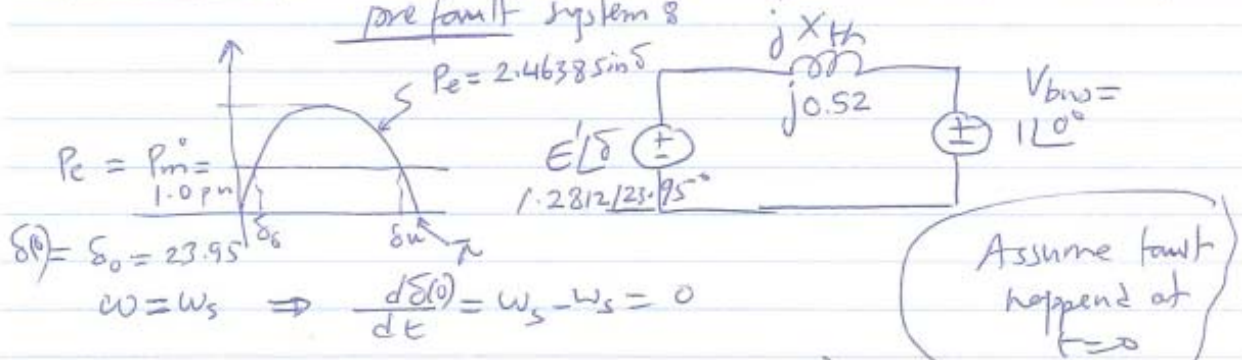 pre fault system 8
Pe = 2.4638 Sin δ
j Xth
j0.52
Vbus =
1∠0°
E'∠δ
1.2812/23.95°
Pe = Pm° =
1.0 pu
δ0
δu
π
δ(0) = δ0 = 23.95°
ω = ωs ⇒ dδ(0)/dt = ωs - ωs = 0
Assume fault
happend at
t=0